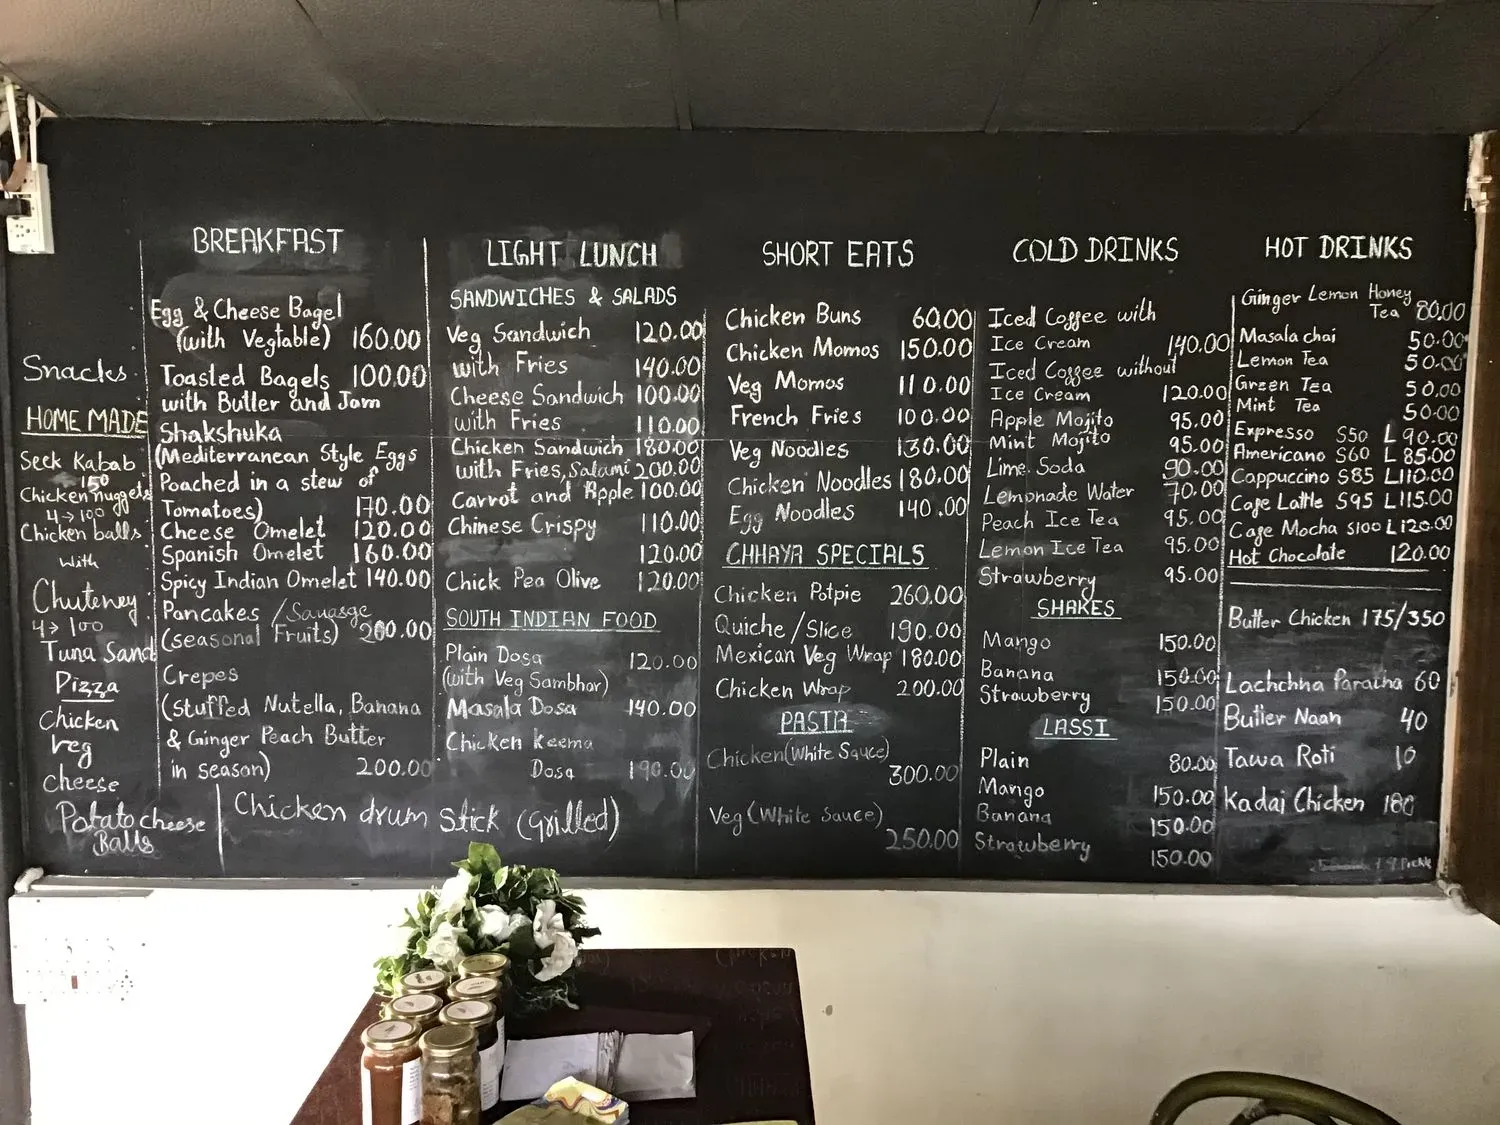 Snacks
HOME MADE
Seek Kabab
150
Chicken nuggets
4→100
Chicken balls
with
Chuteney
4→100
Tuna Sand
Pizza
Chicken
veg
cheese
Potato cheese
Balls
BREAKFAST
Egg & Cheese Bagel
(with Vegtable) 160.00
Toasted Bagels 100.00
with Butler and Jam
Shakshuka
(Mediterranean Style Eggs
Poached in a stew of
Tomatoes) 170.00
Cheese Omelet 120.00
Spanish Omelet 160.00
Spicy Indian Omelet 140.00
Pancakes / Sauasge
(seasonal Fruits) 200.00
Crepes
(stuffed Nutella, Banana
& Ginger Peach Butter
in season) 200.00
Chicken drum Stick (Grilled)
LIGHT LUNCH
SANDWICHES & SALADS
Veg Sandwich 120.00
with Fries 140.00
Cheese Sandwich 100.00
with Fries 110.00
Chicken Sandwich 180.00
with Fries, Salami 200.00
Carrot and Apple 100.00
Chinese Crispy 110.00
120.00
Chick Pea Olive 120.00
SOUTH INDIAN FOOD
Plain Dosa 120.00
(with Veg Sambhar)
Masala Dosa 140.00
Chicken Keema
Dosa 190.00
SHORT EATS
Chicken Buns 60.00
Chicken Momos 150.00
Veg Momos 110.00
French Fries 100.00
Veg Noodles 130.00
Chicken Noodles 180.00
Egg Noodles 140.00
CHHAYA SPECIALS
Chicken Potpie 260.00
Quiche/Slice 190.00
Mexican Veg Wrap 180.00
Chicken Wrap 200.00
PASTA
Chicken (White Sauce)
300.00
Veg (White Sauce)
250.00
COLD DRINKS
Iced Coffee with
Ice Cream 140.00
Iced Coffee without
Ice Cream 120.00
Apple Mojito 95.00
Mint Mojito 95.00
Lime Soda 90.00
Lemonade Water 70.00
Peach Ice Tea 95.00
Lemon Ice Tea 95.00
Strawberry 95.00
SHAKES
Mango 150.00
Banana 150.00
Strawberry 150.00
LASSI
Plain 80.00
Mango 150.00
Banana 150.00
Strawberry 150.00
HOT DRINKS
Ginger Lemon Honey
Tea 80.00
Masala chai 50.00
Lemon Tea 50.00
Green Tea 50.00
Mint Tea 50.00
Expresso S50 L90.00
Americano S60 L85.00
Cappuccino S85 L110.00
Cafe Lattle S95 L115.00
Cafe Mocha S100 L120.00
Hot Chocolate 120.00
Butter Chicken 175/350
Lachchha Paratha 60
Butter Naan 40
Tawa Roti 10
Kadai Chicken 180